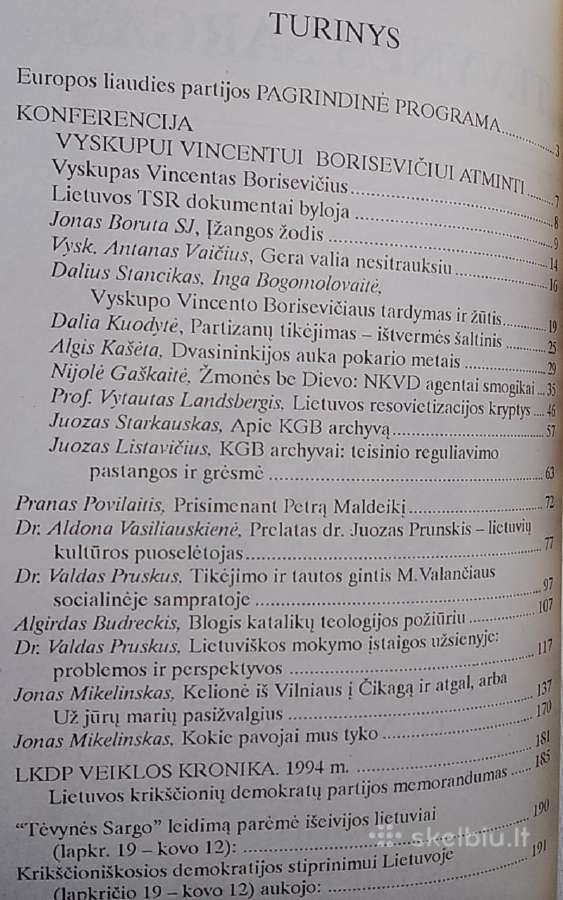 TURINYS
Europos liaudies partijos PAGRINDINĖ PROGRAMA..........3
KONFERENCIJA
VYSKUPUI VINCENTUI BORISEVIČIUI ATMINTI..........7
Vyskupas Vincentas Borisevičius..........8
Lietuvos TSR dokumentai byloja..........9
Jonas Boruta SJ, Įžangos žodis..........14
Vysk. Antanas Vaičius, Gera valia nesitrauksiu..........16
Dalius Stancikas, Inga Bogomolovaitė,
Vyskupo Vincento Borisevičiaus tardymas ir žūtis..........19
Dalia Kuodytė, Partizanų tikėjimas – ištvermės šaltinis..........25
Algis Kašėta, Dvasininkijos auka pokario metais..........29
Nijolė Gaškaitė, Žmonės be Dievo: NKVD agentai smogikai...35
Prof. Vytautas Landsbergis, Lietuvos resovietizacijos kryptys....46
Juozas Starkauskas, Apie KGB archyvą..........57
Juozas Listavičius, KGB archyvai: teisinio reguliavimo
pastangos ir grėsmė..........63
Pranas Povilaitis, Prisimenant Petrą Maldeikį..........72
Dr. Aldona Vasiliauskienė, Prelatas dr. Juozas Prunskis – lietuvių
kultūros puoselėtojas..........77
Dr. Valdas Pruskus, Tikėjimo ir tautos gintis M.Valančiaus
socialinėje sampratoje..........97
Algirdas Budreckis, Blogis katalikų teologijos požiūriu..........107
Dr. Valdas Pruskus, Lietuviškos mokymo įstaigos užsienyje:
problemos ir perspektyvos..........117
Jonas Mikelinskas, Kelionė iš Vilniaus į Čikagą ir atgal, arba
Už jūrų marių pasižvalgius..........137
Jonas Mikelinskas, Kokie pavojai mus tyko..........170
LKDP VEIKLOS KRONIKA. 1994 m...........181
Lietuvos krikščionių demokratų partijos memorandumas..........185
“Tėvynės Sargo” leidimą parėmė išeivijos lietuviai
(lapkr. 19 – kovo 12):..........190
Krikščioniškosios demokratijos stiprinimui Lietuvoje
(lapkričio 19 – kovo 12) aukojo:..........191
skelbiu.lt